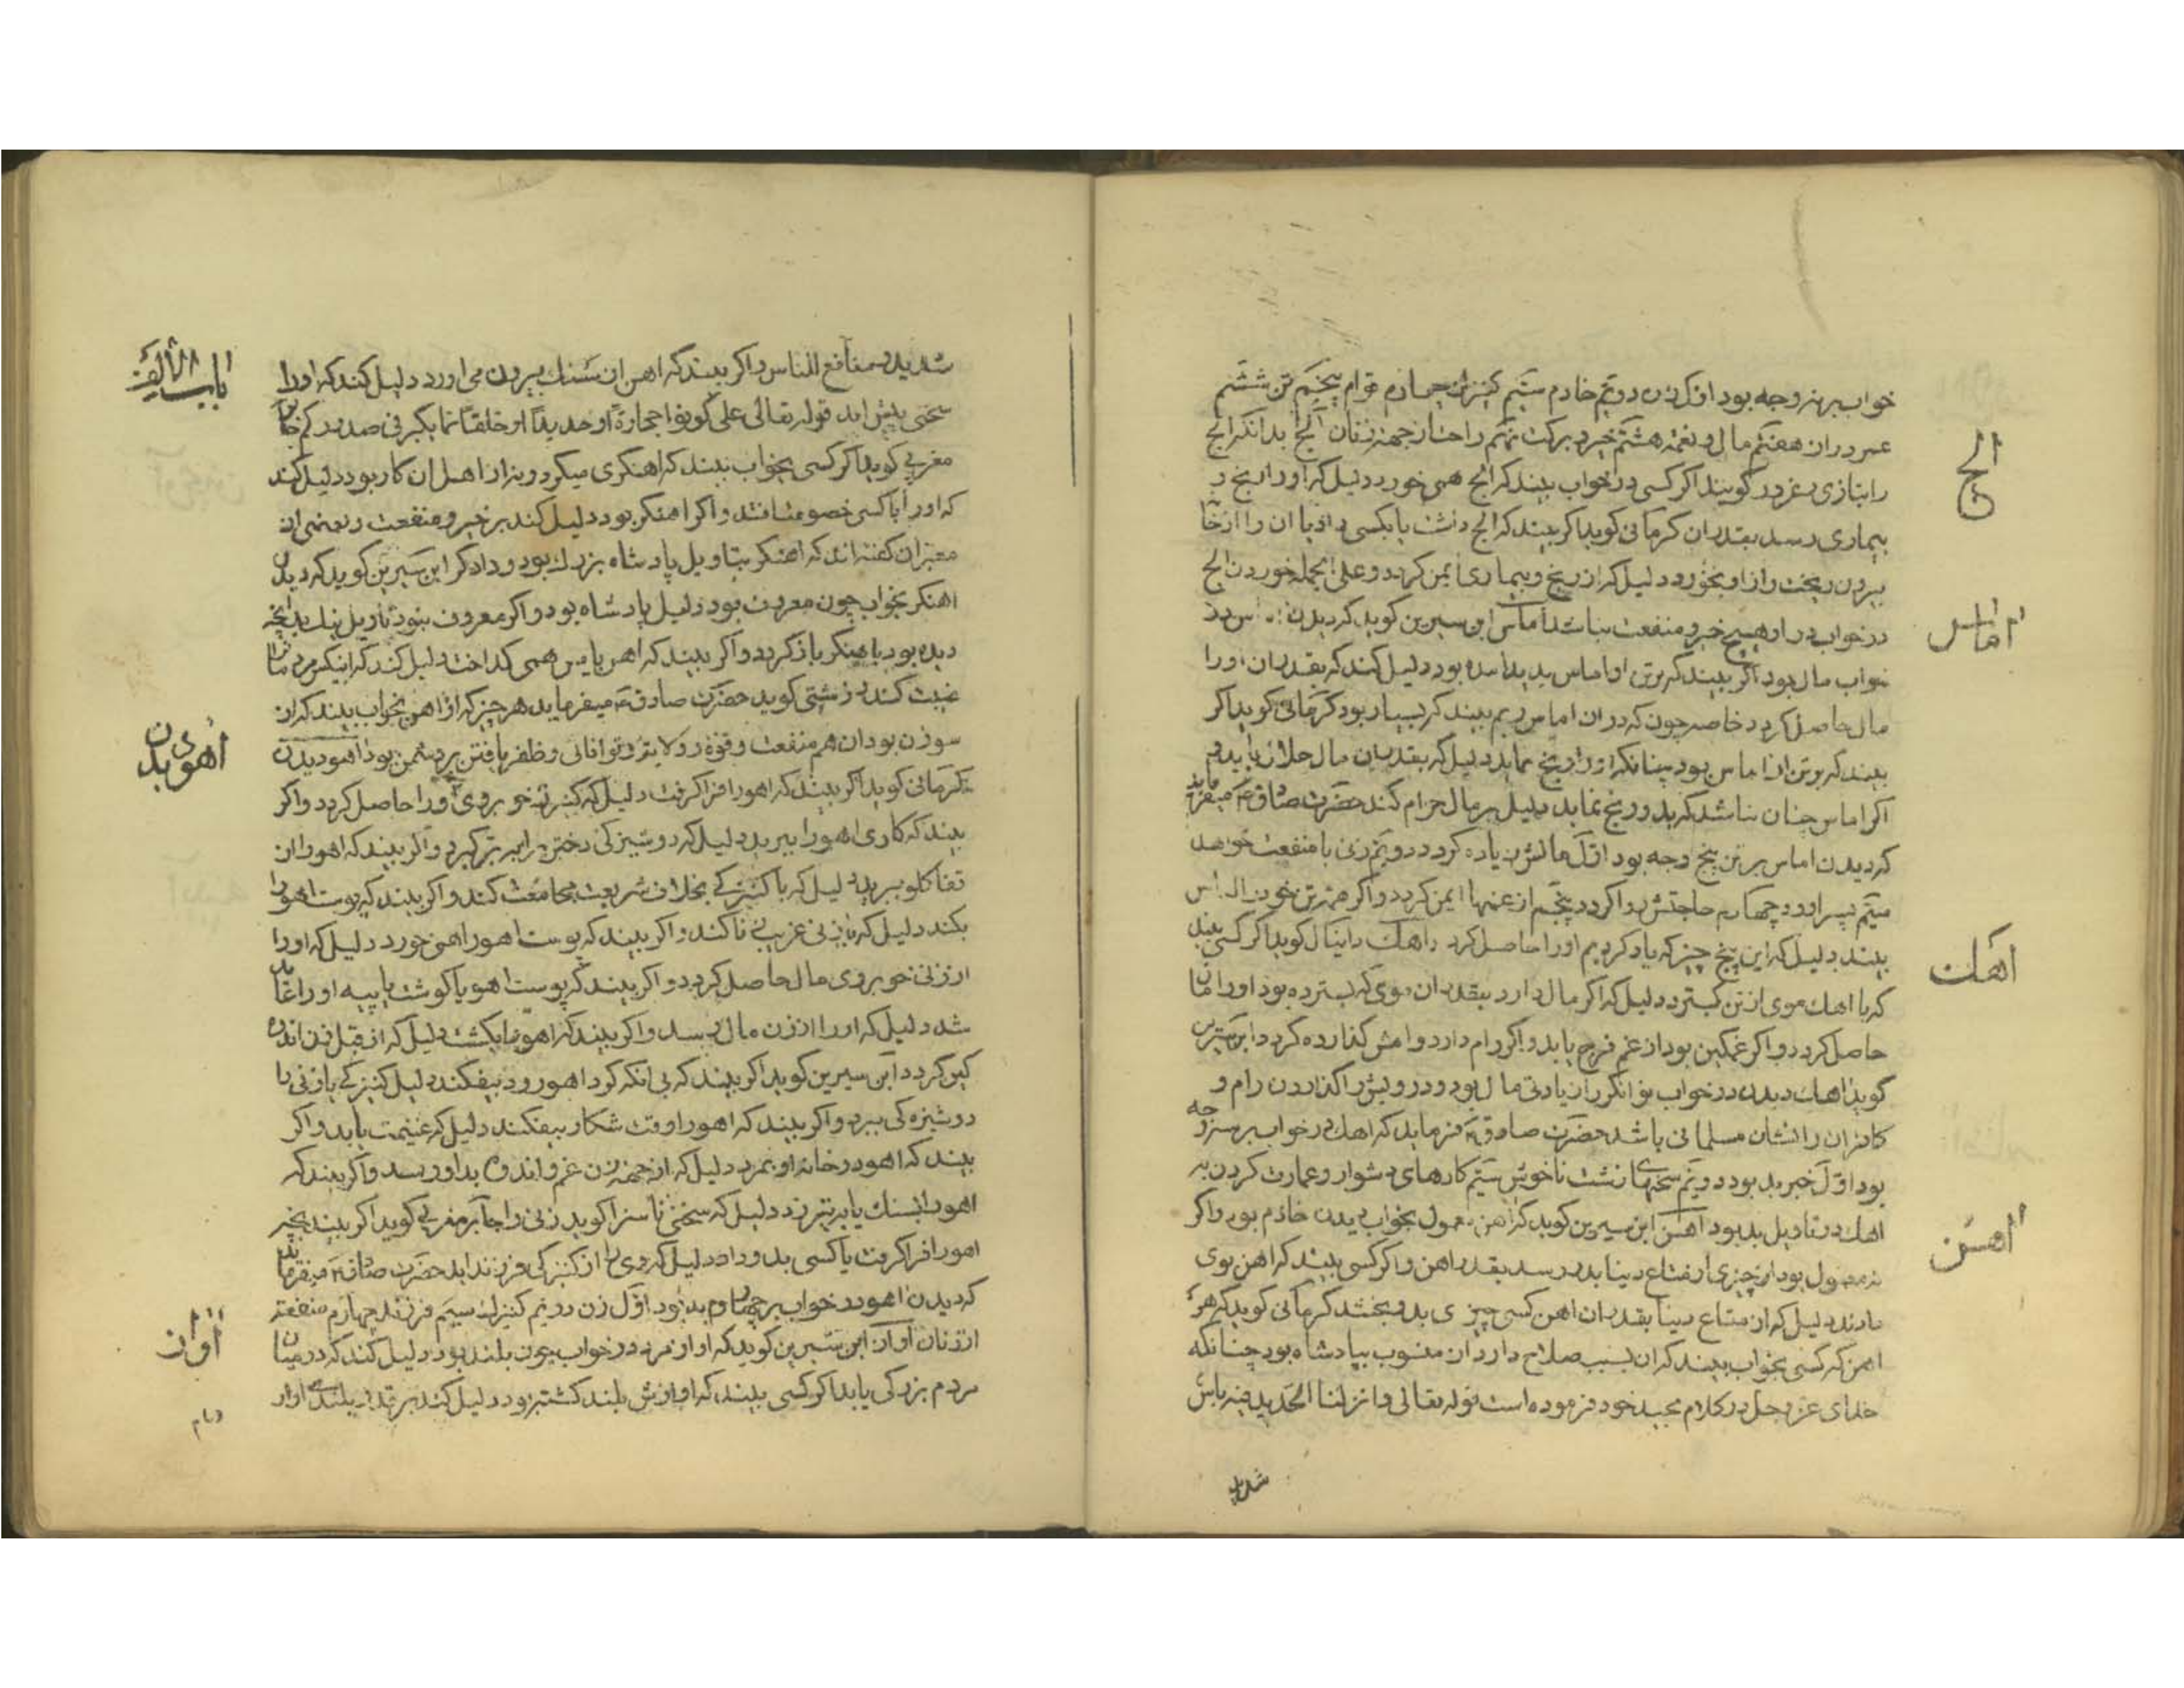 خواب بر نه وجه بود اول زن دوتم خادم سیتم کنیزک چهارم قوام پنجم تن ششم
عمر دراز هفتم مال و نعمة هشتم خیر و برکت نهم راحت از جهة زنان الج بدانکه الج
الج
را بتازی زعرور گویند اگر کسی در خواب بیند که الج همی خورد دلیل که او را رنج و
بیماری رسد بقدر ان کرمانی کوید اگر بیند که الج داشت یا بکسی داد یا ان را از خانه
بیرون ریخت و از او نخورد دلیل که از رنج و بیماری ایمن کردد و علی الجمله خوردن الج
در خواب در او هیچ خیر و منفعت نباشد اماس ابن سیرین کوید که دیدن اماس در
اماس
خواب مال بود اکر بیند که بر تن او اماس پدید آمده بود دلیل کند که بقدر ان او را
مال حاصل کردد خاصه چون که در ان اماس ریم بیند که بسیار بود کرمانی کوید اکر
بیند که بر تن او اماس بود چنانکه او را رنج نماید دلیل که بقدر ان مال حلال یابد و
اکر اماس چنان باشد که بدو رنج نماید دلیل بر مال حرام کند حضرت صادق ع میفرماید
که دیدن اماس بر تن پنج وجه بود اول مالش زیاده کردد دویم زنی با منفعت خواهد
سیم پسر اورد چهارم حاجتش روا کردد پنجم از غمها ایمن کردد و اکر همه تن خود را اماس
بیند دلیل که این پنج چیز که یاد کردیم او را حاصل کردد اهک دانیال کوید اکر کسی بیند
اهک
که با اهک موی از تن بسترد دلیل که اکر مال دارد بقدر ان موی که بسترده بود او را مال
حاصل کردد و اکر غمکین بود از غم فرج یابد و اکر وام دارد وامش کذارده کردد ابن سیرین
کوید اهک دیدن در خواب توانکر را زیادتی مال بود و درویش را کذاردن وام و
کافران را نشان مسلمانی باشد حضرت صادق ع فرماید که اهک در خواب بر سه وجه
بود اول خبر بد بود دویم سخنهای زشت ناخوش سیتم کارهای دشوار و عمارت کردن به
اهک در تاویل بد بود اهن ابن سیرین کوید که اهن معمول بخواب دیدن خادم بود و اکر
اهن
نه معمول بود از چیزی از متاع دینا بدو رسد بقدر اهن و اکر کسی بیند که اهن بوی
دادند دلیل که از متاع دینا بقدر ان اهن کسی چیزی بدو بخشد کرمانی کوید که هر
اهن که کسی بخواب بیند که ان بسبب صلاح دارد ان منسوب بپادشاه بود چنانکه
خدای عز و جل در کلام مجید خود فرموده است قوله تعالی و انزلنا الحدید فیه باس
شدید
باب الالف
شدید و منافع للناس و اکر بیند که اهن از سنک بیرون می اورد دلیل کند که او را
سختی پیش اید قوله تعالی علی کونوا حجارة او حدیدا او خلقا مما یکبر فی صدورکم جابر
مغربی کوید اکر کسی بخواب بیند که اهنکری میکرد و نه از اهل ان کار بود دلیل کند
که او را با کسی خصومت افتد و اکر اهنکر بود دلیل کند بر خیر و منفعت و بعضی از
معبران کفته اند که اهنکر بتاویل پادشاه بزرک بود و دادکر ابن سیرین کوید که دیدن
اهنکر بخواب چون معروف بود دلیل پادشاه بود و اکر معروف نبود تاویل نیک بد انچه
دیده بود باهنکر باز کردد و اکر بیند که اهن یا مس همی کداخت دلیل کند که اینکس مردمانرا
غیبت کند و زشتی کوید حضرت صادق ع میفرماید هر چیز که از اهن بخواب بیند که ان
سوزن بود ان هم منفعت و قوة و ولایت و توانائی و ظفر یافتن بر دشمن بود اهو دیدن
اهوی دیدن
کرمانی کوید اکر بیند که اهو را فرا کرفت دلیل که کنیزکی خوبروی او را حاصل کردد و اکر
بیند که کلوی اهو را ببرید دلیل که دوشیزکی دختری را ببرد و اکر بیند که اهو را از
قفا کلو ببرید دلیل که با کنیزکی بخلاف شریعت مجامعت کند و اکر بیند که پوست اهو را
بکند دلیل که با زنی غریب زنا کند و اکر بیند که پوست اهو را همی خورد دلیل که او را
از زنی خوبروی مال حاصل کردد و اکر بیند که پوست اهو یا کوشت یا پیه او را عاید
شد دلیل که او را از زن مال رسد و اکر بیند که اهو را بکشت دلیل که از قبل زن اندوه
کین کردد ابن سیرین کوید اکر بیند که بی انکه کرد اهو رود بیفکند دلیل کنیزکی یا زنی را
دوشیزه کی ببرد و اکر بیند که اهو را وقت شکار بیفکند دلیل که غنیمت یابد و اکر
بیند که اهو در خانه او بمرد دلیل که از جهة زن غم و اندوه بدو رسد و اکر بیند که
اهو را بسنک یا بر تیر زد دلیل که سخنی ناسزا کوید زنی را جابر مغربی کوید اکر بیند نخچیر
اهو را فرا کرفت یا کسی بدو داد دلیل که وی را از کنیزکی فرزند اید حضرت صادق ع میفرماید
که دیدن اهو در خواب بر چهار وجه بود اول زن دویم کنیزک سیم فرزند چهارم منفعة
از زنان اواز ابن سیرین کوید که اواز مرد در خواب چون بلند بود دلیل کند که در میان
اواز
مردم بزرکی یابد اکر کسی بیند که اوازش بلند کشته بود دلیل کند بر قدر بلندی اواز